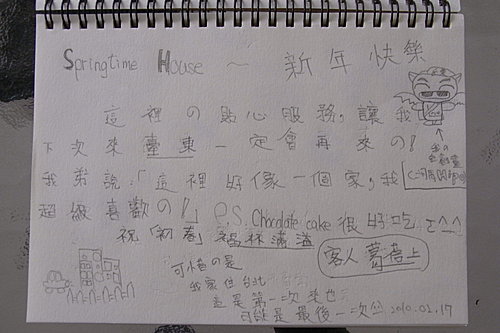 Springtime House ～ 新年快樂
這裡の點心服務，讓我
下次來臺東一定會再來の！
我弟說：「這裡好像一個家，我
超級喜歡の！」P.S. Chocolate cake 很好吃 ㄛ^_^
祝「初春」福林滿溢
客人 葛蓓上
可惜の是
我家住台北
這是第一次來也
可能是最後一次公 2010.02.17
我の